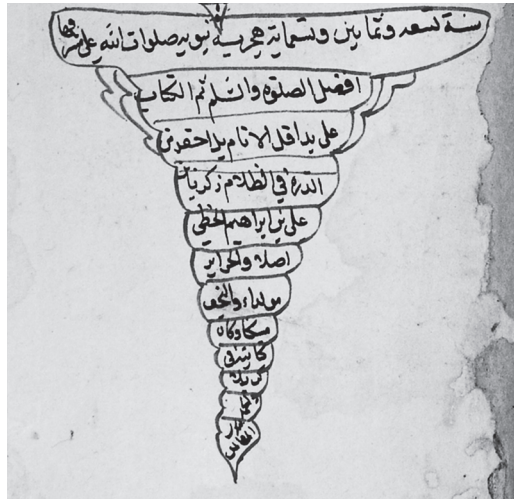 سنة تسعه وثمانين وتسعماية هجرية نبويه صلوات الله على مشرفها
افضل الصلوة والسلم تم الكتاب
على يد اقل الانام بل احقر من
الدرة في الظلام زكريا بن
علي بن ابراهيم الخطي
اصلا والجزاير
مولدا والنجف
مسكنا وكان